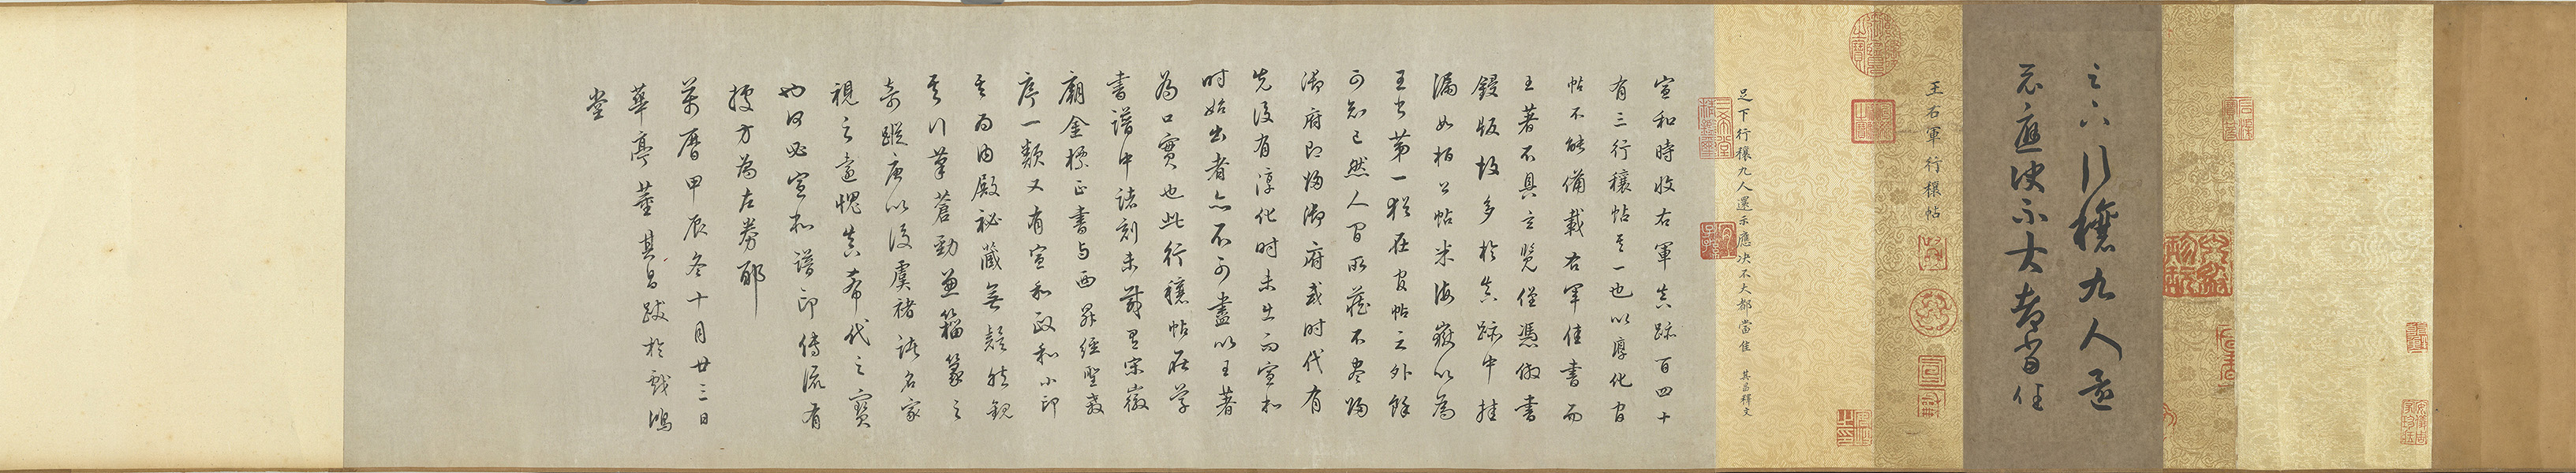 足下行穰九人還
示應決不大都當佳
王右軍行穰帖
足下行穰九人還示應決不大都當佳 其昌釋文
宣和時收右軍真跡百四十
有三行穰帖其一也以淳化官
帖不能備載右軍佳書而
王著不具玄覽僅憑倣書
鋟版故多於真跡中挂
漏如桓公帖米海嶽以為
王書第一猶在官帖之外餘
可知已然人間所藏不盡歸
御府即歸御府或時代有
先後有淳化時未出而宣和
時始出者亦不可盡以王著
為口實也此行穰帖在學
書譜中諸刻未載有宋徽
廟金標正書與西昇經聖教
序一類又有宣和政和小印
其為內殿祕藏無疑然觀
其行筆蒼勁兼籀篆之
奇蹤唐以後虞褚諸名家
視之遠愧真希代之寶
也何必宣和譜印傳流有
據方為左券耶
萬曆甲辰冬十月廿三日
華亭董其昌跋於戲鴻
堂